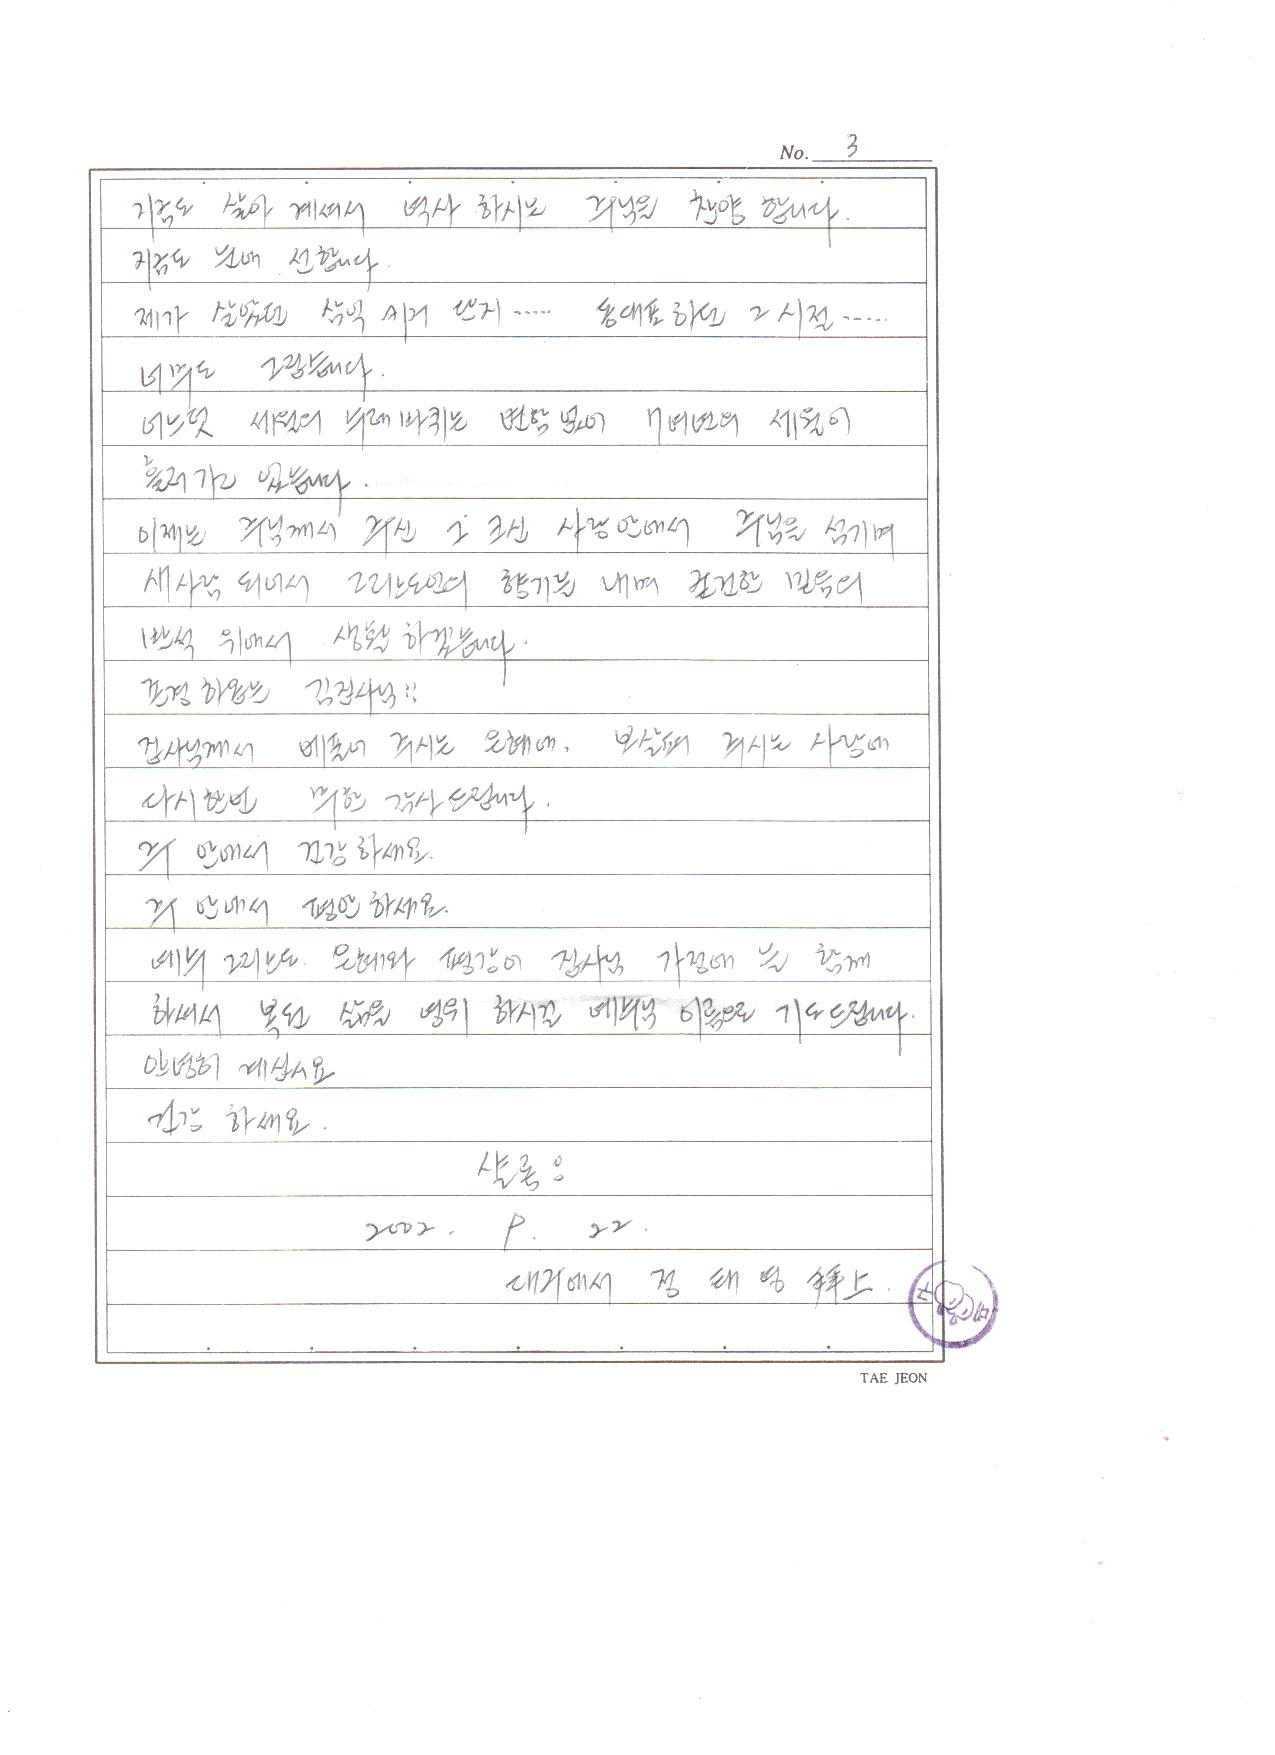 No. 3
지금도 살아 계셔서 역사 하시는 주님을 찬양 합니다.
지금도 눈에 선합니다.
제가 살았던 삼익 비치 맨지..... 동대표 하던 그 시절.....
너무도 그립습니다.
어느덧 세월이 수레바퀴는 변함 없이 1년여의 세월이
흘러가고 있습니다.
이제는 주님께서 주신 그 크신 사랑안에서 주님을 섬기며
새사람 되어서 그리스도인의 향기를 내며 굳건한 믿음의
반석 위에서 생활 하겠습니다.
존경 하옵는 김집사님!!
집사님께서 베풀어 주시는 은혜에, 보살펴 주시는 사랑에
다시한번 무한 감사 드립니다.
주 안에서 건강 하세요.
주 안에서 평안 하세요.
예수 그리스도 은혜와 평강이 집사님 가정에 늘 함께
하셔서 복된 삶을 영위 하시길 예수님 이름으로 기도드립니다.
안녕히 계십시요
건강 하세요.
샬롬:
2002. 8. 22.
대구에서 정 태 영 拜上.
TAE JEON